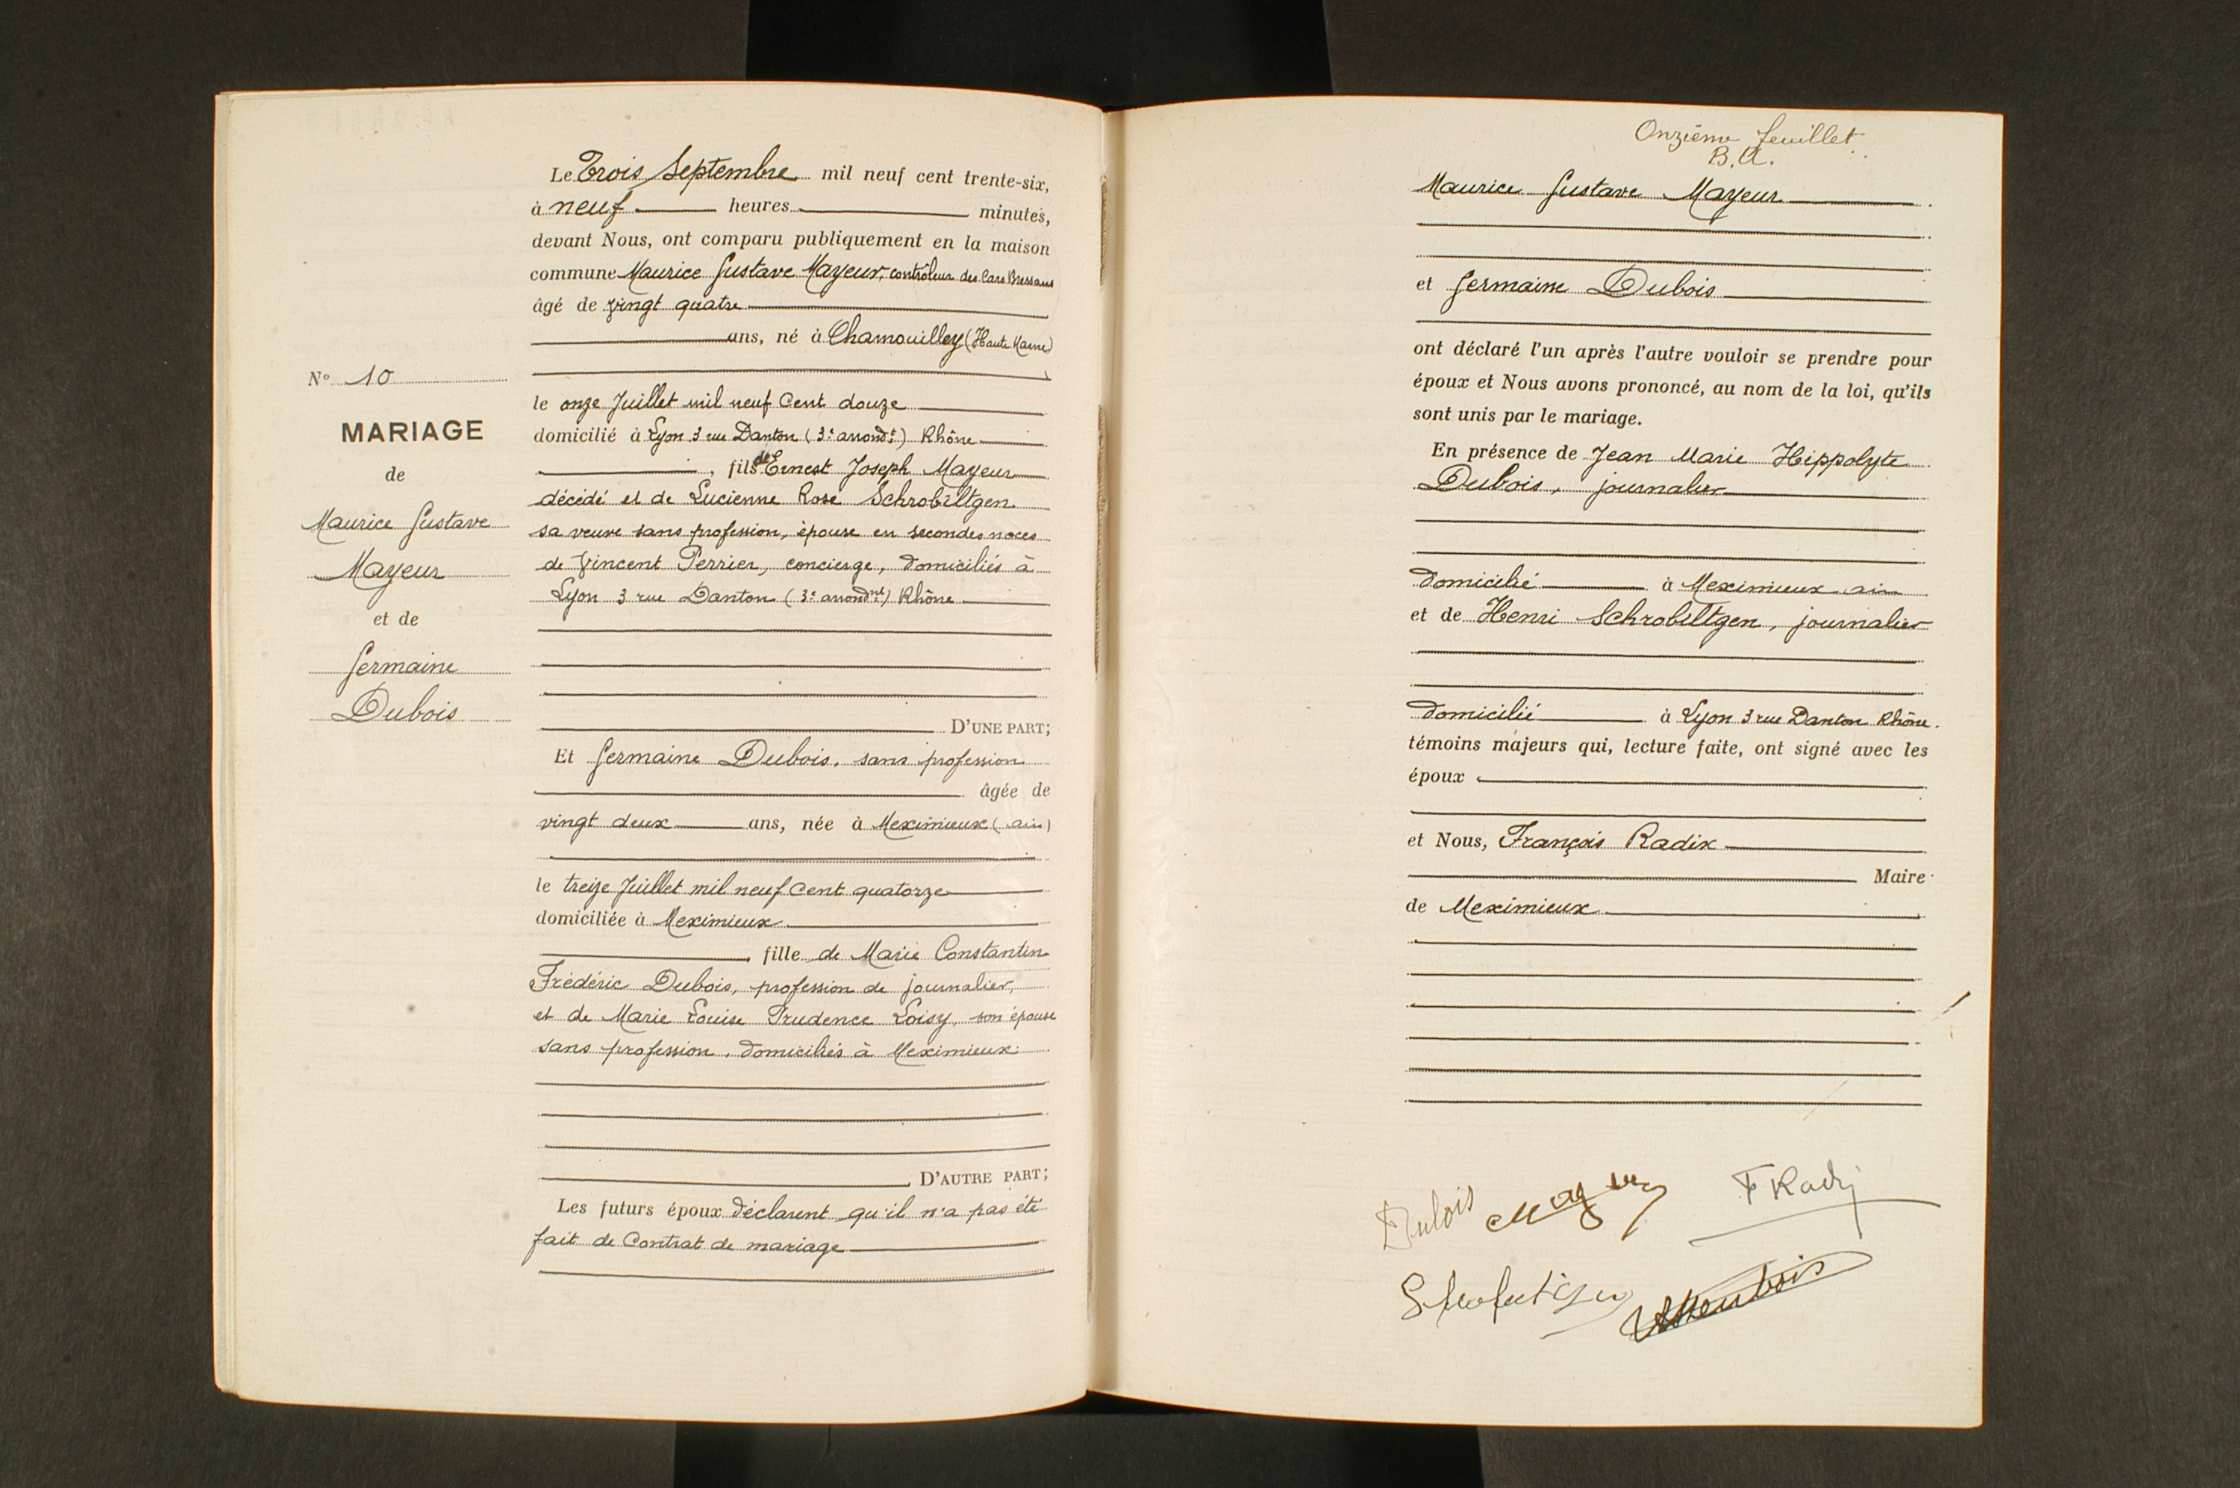 Le Trois Septembre mil neuf cent trente-six,
à neuf heures minutes,
devant Nous, ont comparu publiquement en la maison
commune Maurice Gustave Mayeur, contrôleur des Cars Bressans
âgé de vingt quatre
ans, né à Chamouilley (Haute Marne)
le onze Juillet mil neuf Cent douze
domicilié à Lyon 3 rue Danton (3e arrondt) Rhône
, fils de Ernest Joseph Mayeur
décédé et de Lucienne Rose Schrobiltgen
sa veuve sans profession, épouse en secondes noces
de Vincent Perrier, concierge, domiciliés à
Lyon 3 rue Danton (3e arrondnt) Rhône
D'UNE PART;
Et Germaine Dubois, sans profession
âgée de
vingt deux ans, née à Meximieux (ain)
le treize Juillet mil neuf Cent quatorze
domiciliée à Meximieux
, fille de Marie Constantin
Frédéric Dubois, profession de journalier,
et de Marie Louise Prudence Loisy, son épouse
sans profession, domiciliés à Meximieux
, D'AUTRE PART;
Les futurs époux déclarent qu'il n'a pas été
fait de Contrat de mariage
No 10
MARIAGE
de
Maurice Gustave
Mayeur
et de
Germaine
Dubois
Onzième feuillet
B.A.
Maurice Gustave Mayeur
et Germaine Dubois
ont déclaré l'un après l'autre vouloir se prendre pour
époux et Nous avons prononcé, au nom de la loi, qu'ils
sont unis par le mariage.
En présence de Jean Marie Hippolyte
Dubois, journalier
domicilié à Meximieux ain
et de Henri Schrobiltgen, journalier
domicilié à Lyon 3 rue Danton Rhône.
témoins majeurs qui, lecture faite, ont signé avec les
époux
et Nous, François Radix
Maire
de Meximieux
Dubois Mayeur F Radix